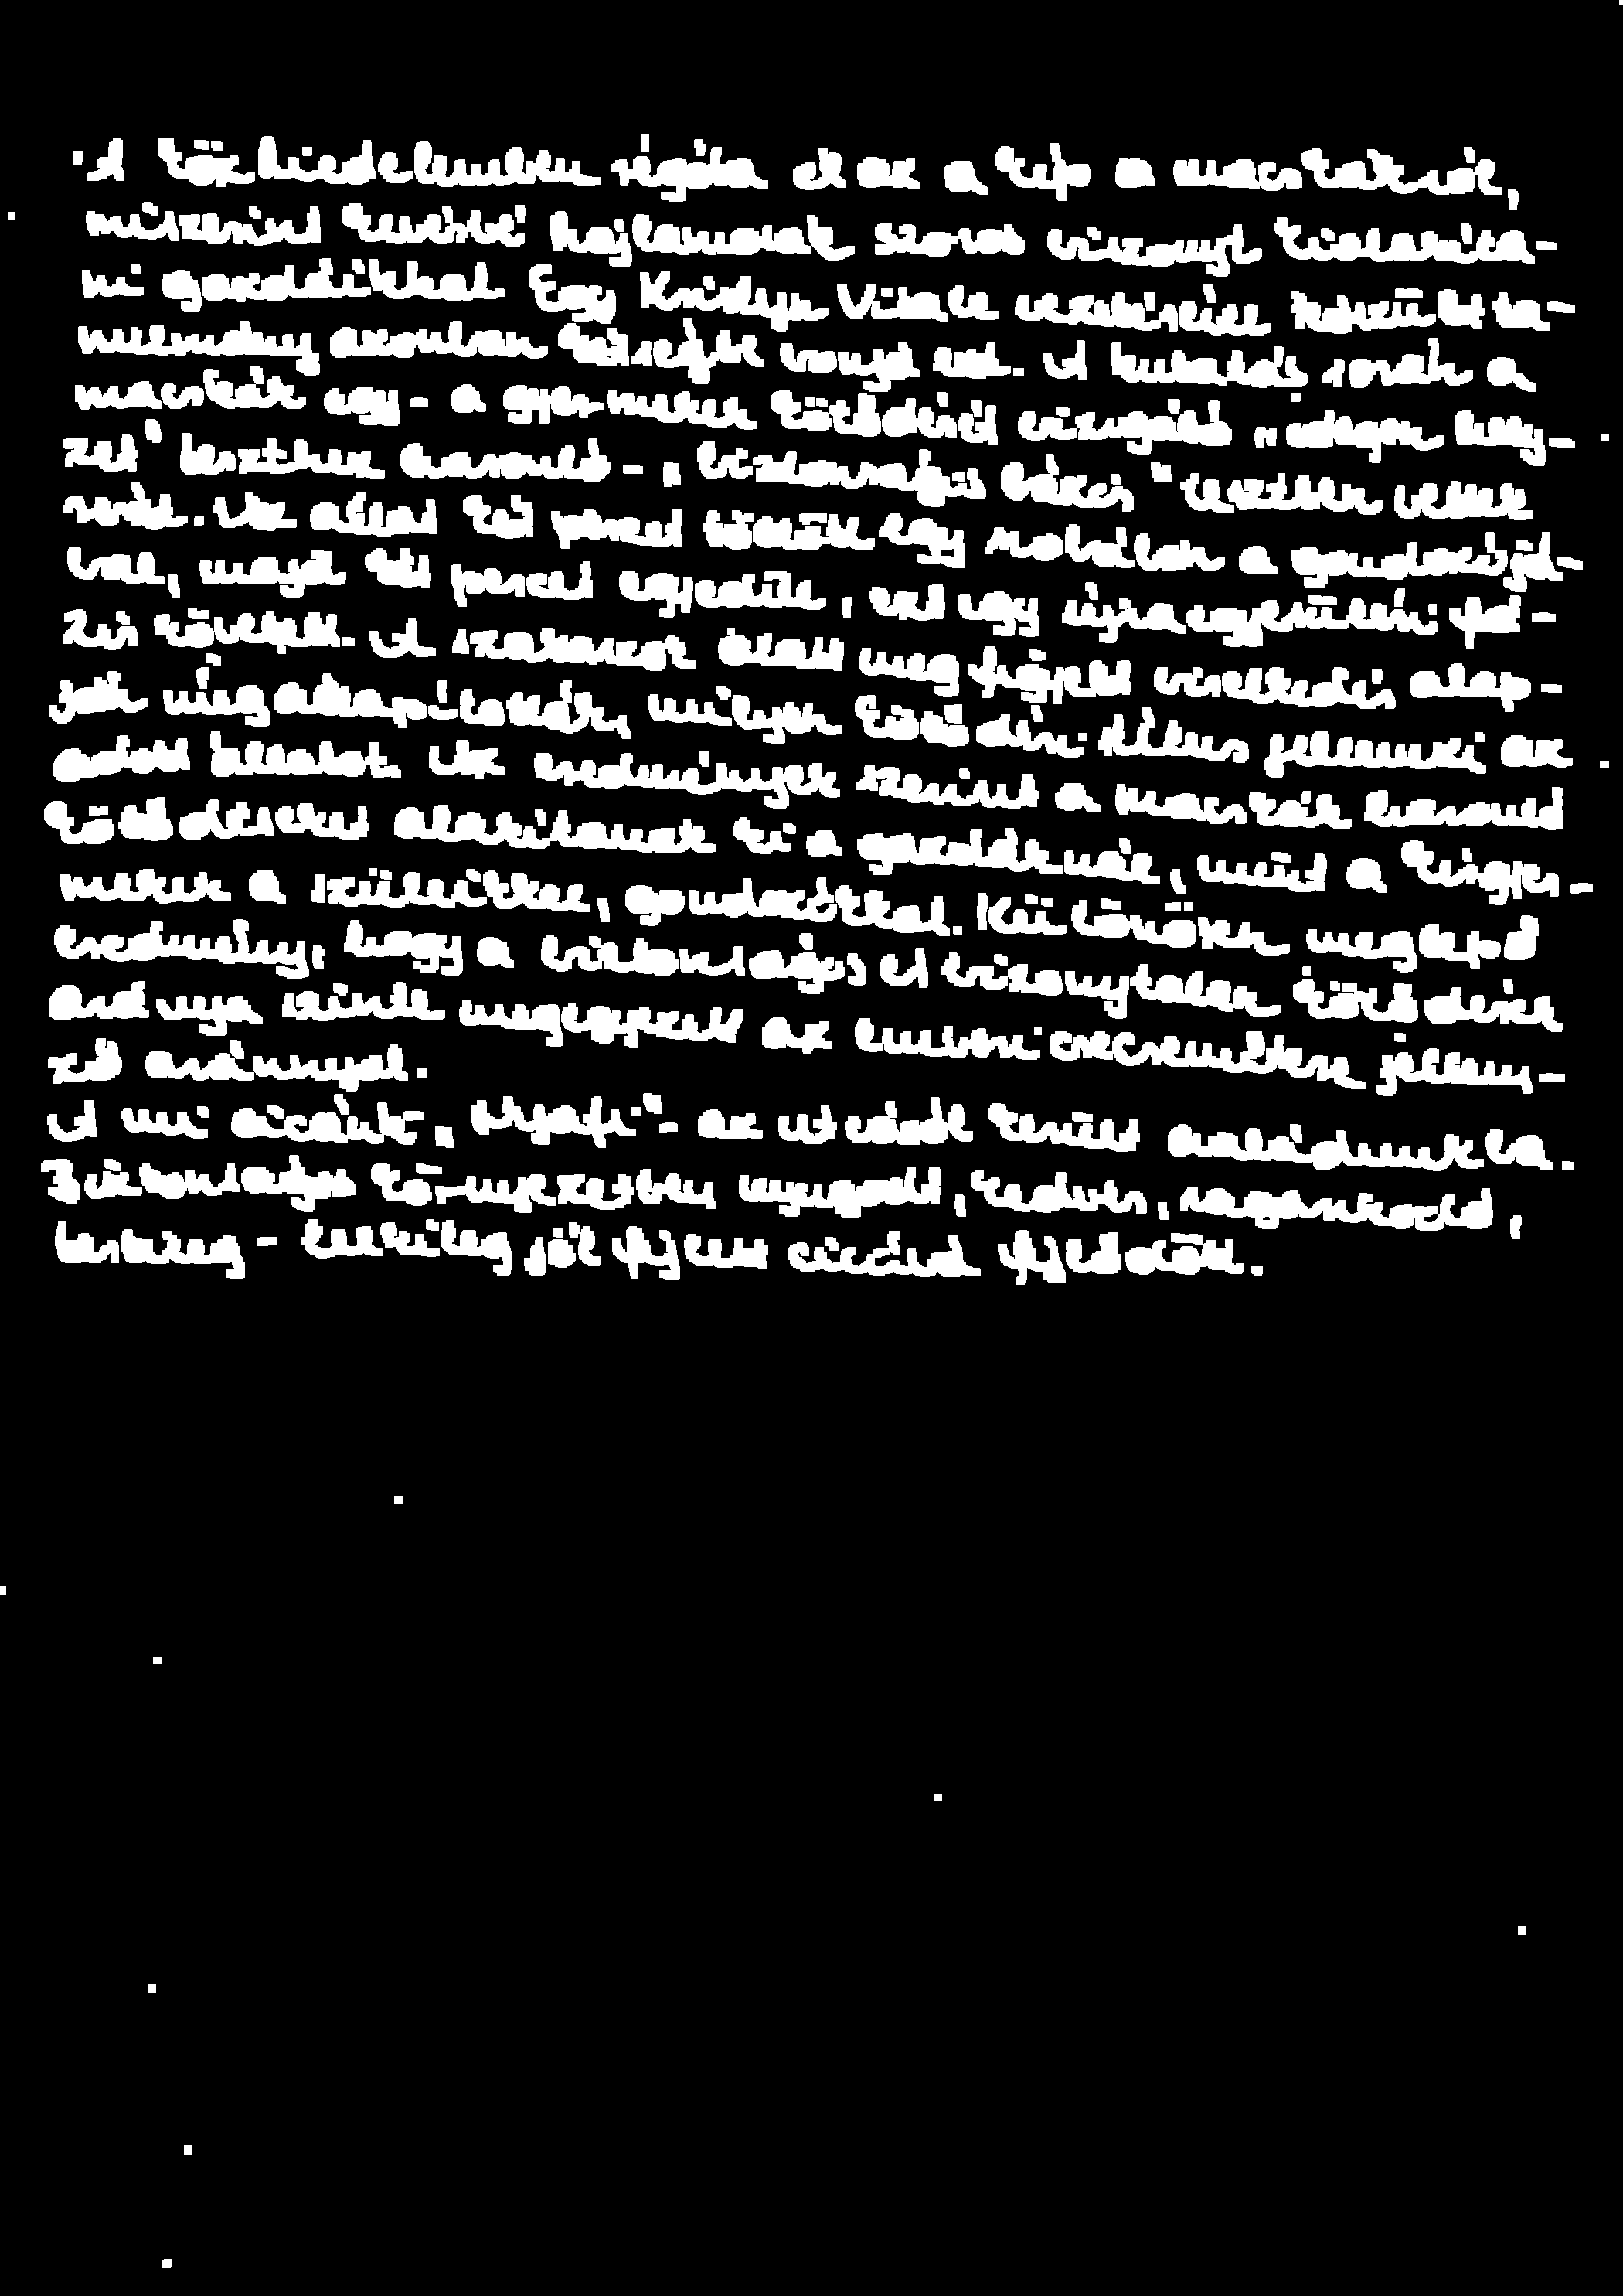 A közhiedelemben régóta él az a kép a macskákról,
miszerint kevésbé hajlamosak szoros viszonyt kialakíta-
ni gazdáikkal. Egy Kristyn Vitale vezetésével készült ta-
nulmány azonban kétségbe vonja ezt. A kutatás során a
macskák egy - a gyermekek kötődését vizsgáló „idegen hely-
zet" teszthez hasonló - „biztonságos bázis" teszten vettek
részt. Az állat két percet töltött egy szobában a gondozójá-
val, majd két percet egyedül, ezt egy újraegyesülési fá-
zis követett. A szakaszok alatt megfigyelt viselkedés alap-
ján megállapították, milyen kötődési stílus jellemzi az
adott állatot. Az eredmények szerint a macskák hasonló
kötődéseket alakítanak ki a gazdáknál, mint a kisgyer-
mekek a szüleikkel, gondozókkal. Különösen meglepő
eredmény, hogy a biztonságos és bizonytalan kötődések
aránya szinte megegyezett az emberi csecsemőkre jellem-
ző aránnyal.
A mi cicánk „Nyafi" - az utcáról került családunkba.
Biztonságos környezetben nyugodt, kedves, ragaszkodó,
testileg - lelkileg jól fejlett cicává fejlődött.